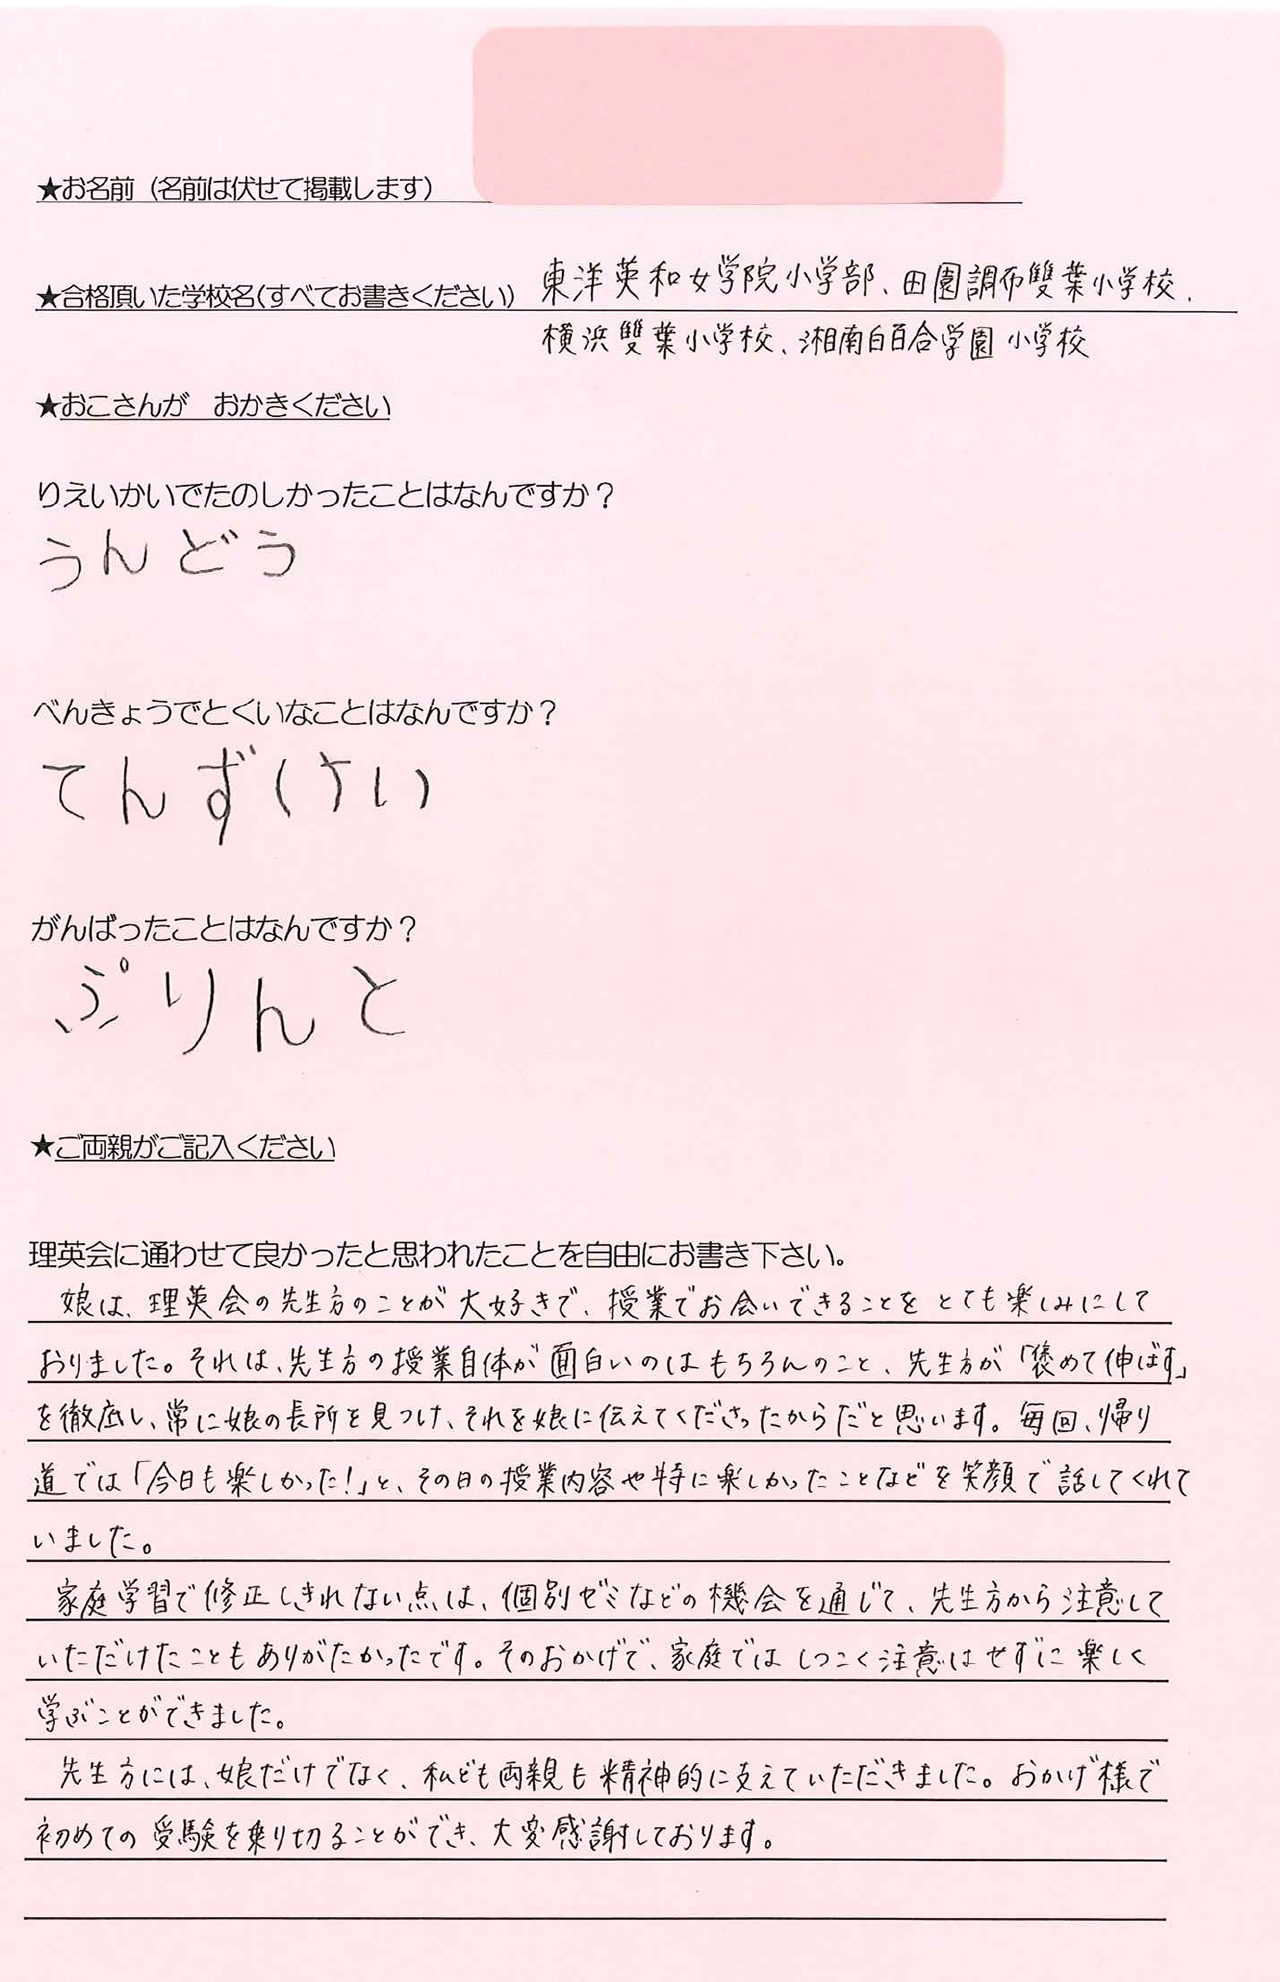 ★お名前（名前は伏せて掲載します）
★合格頂いた学校名(すべてお書きください) 東洋英和女学院小学部、田園調布雙葉小学校、
横浜雙葉小学校、湘南白百合学園小学校
★おこさんが　おかきください
りえいかいでたのしかったことはなんですか？
うんどう
べんきょうでとくいなことはなんですか？
てんずけい
がんばったことはなんですか？
ぷりんと
★ご両親がご記入ください
理英会に通わせて良かったと思われたことを自由にお書き下さい。
娘は、理英会の先生方のことが大好きで、授業でお会いできることをとても楽しみにして
おりました。それは、先生方の授業自体が面白いのはもちろんのこと、先生方が「褒めて伸ばす」
を徹底し、常に娘の長所を見つけ、それを娘に伝えてくださったからだと思います。毎回、帰り
道では「今日も楽しかった！」と、その日の授業内容や特に楽しかったことなどを笑顔で話してくれて
いました。
家庭学習で修正しきれない点は、個別ゼミなどの機会を通じて、先生方から注意して
いただけたこともありがたかったです。そのおかげで、家庭ではしつこく注意はせずに楽しく
学ぶことができました。
先生方には、娘だけでなく、私ども両親も精神的に支えていただきました。おかげ様で
初めての受験を乗り切ることができ、大変感謝しております。